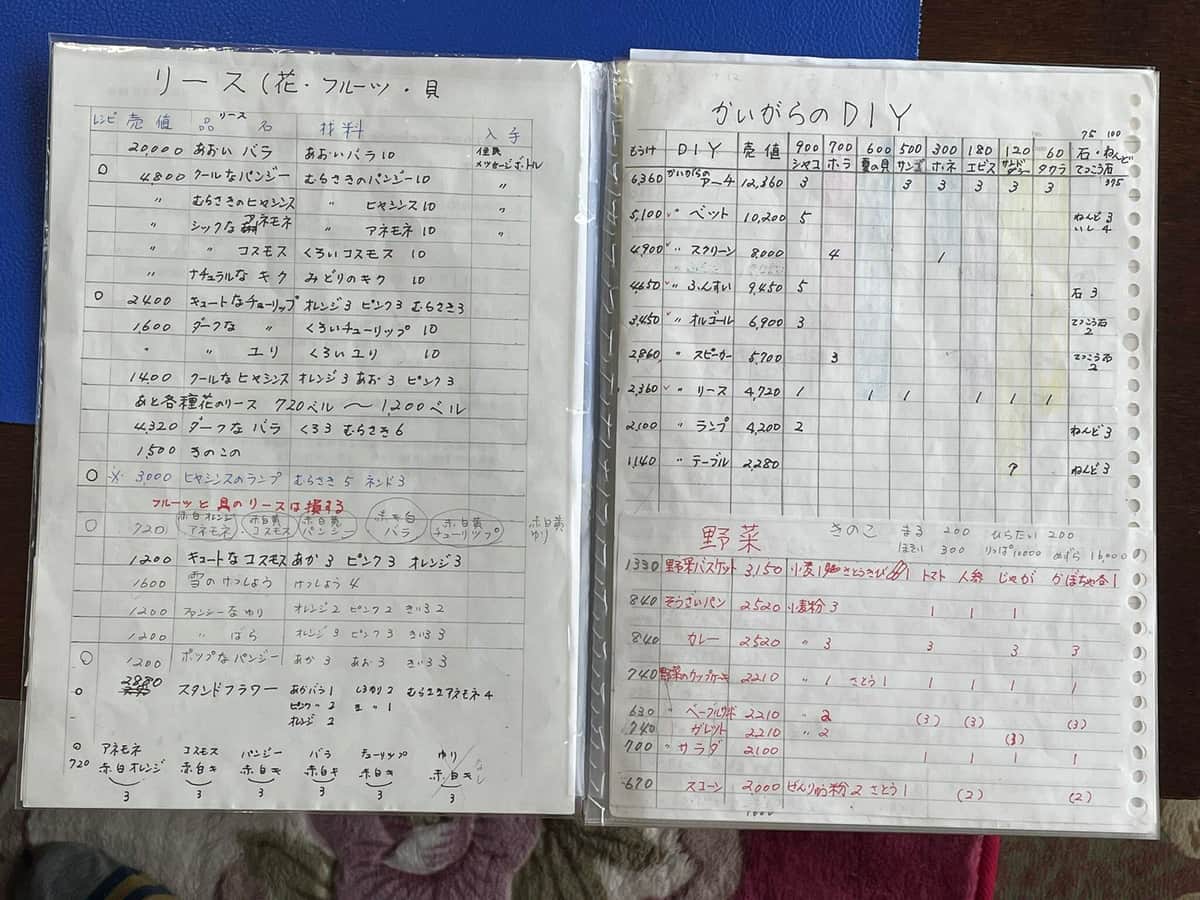 リース（花・フルーツ・貝
レシピ 売値 品リース名 材料 入手
20,000 あおい バラ あおいバラ10 住民 メッセージボトル
○ 4,800 クールなパンジー むらさきのパンジー10 〃
〃 むらさきのヒヤシンス 〃 ヒヤシンス10 〃
〃 シックな アネモネ 〃 アネモネ10 〃
〃 〃 コスモス くろいコスモス 10
〃 ナチュラルな キク みどりのキク 10
○ 2400 キュートなチューリップ オレンジ3 ピンク3 むらさき3
1,600 ダークな 〃 くろいチューリップ 10
〃 〃 ユリ くろいユリ 10
1400 クールなヒヤシンス オレンジ3 あお3 ピンク3
あと各種花のリース 720ベル 〜 1,200ベル
4,320 ダークな バラ くろ3 むらさき6
1,500 きのこの
○ ※ 3,000 ヒヤシンスのランプ むらさき 5 ネンド3
フルーツと貝のリースは損する
○ 720 赤白オレンジ アネモネ 赤白黄 コスモス 赤白黄 パンジー 赤黄白 バラ 赤白黄 チューリップ 赤白黄 ゆり
1,200 キュートな コスモス あか3 ピンク3 オレンジ3
1600 雪のけっしょう けっしょう4
1200 ファンシーなゆり オレンジ2 ピンク2 きいろ2
1200 〃 ばら オレンジ3 ピンク3 きいろ3
○ 1200 ポップなパンジー あか3 あお3 きいろ3
○ 2880 スタンドフラワー あかバラ1 しろゆり2 むらさきアネモネ4
ピンク〃2 き〃1
オレンジ 2
○ 720 アネモネ コスモス パンジー バラ チューリップ ゆり なし
赤白オレンジ 赤白キ 赤白キ 赤白キ 赤白キ 赤白キ
3 3 3 3 3 3
かいがらのDIY
75 100
もうけ DIY 売値 900 シャコ 700 ホラ 600 夏の貝 500 サンゴ 300 ホネ 180 エビス 120 サンドダラー 60 タカラ 石・ねんど てっこう石 375
6,360 かいがらの アーチ 12,360 3 3 3 3 3 3
5,100 〃 ベット 10,200 5 ねんど3 いし4
4,900 〃 スクリーン 8,000 4 1
4,650 〃 ふんすい 9,450 5 石3
3,450 〃 オルゴール 6,900 3 てっこう石2
2,860 〃 スピーカー 5,700 3 てっこう石2
2,360 〃 リース 4,720 1 1 1 1 1 1
2,100 〃 ランプ 4,200 2 ねんど3
1,140 〃 テーブル 2,280 7 ねんど3
野菜 きのこ まる 200 ひらたい 200
ほそい 300 りっぱ10000 めずら 16000
1330 野菜バスケット 3,150 小麦1 さとうきび 1 トマト 人参 じゃが かぼちゃ各1
840 そうざいパン 2520 小麦粉3 1 1 1
840 カレー 2520 〃 3 3 3 3
740 野菜のカップケーキ 2210 〃 1 さとう1 1 1 1 1
630 〃 ベーグルサンド 2210 〃 2 (3) (3) (3)
740 ガレット 2210 〃 2 (3)
700 〃 サラダ 2100 1 1 1 1
670 スコーン 2,000 ぜんりゅう粉2 さとう1 (2) (2)